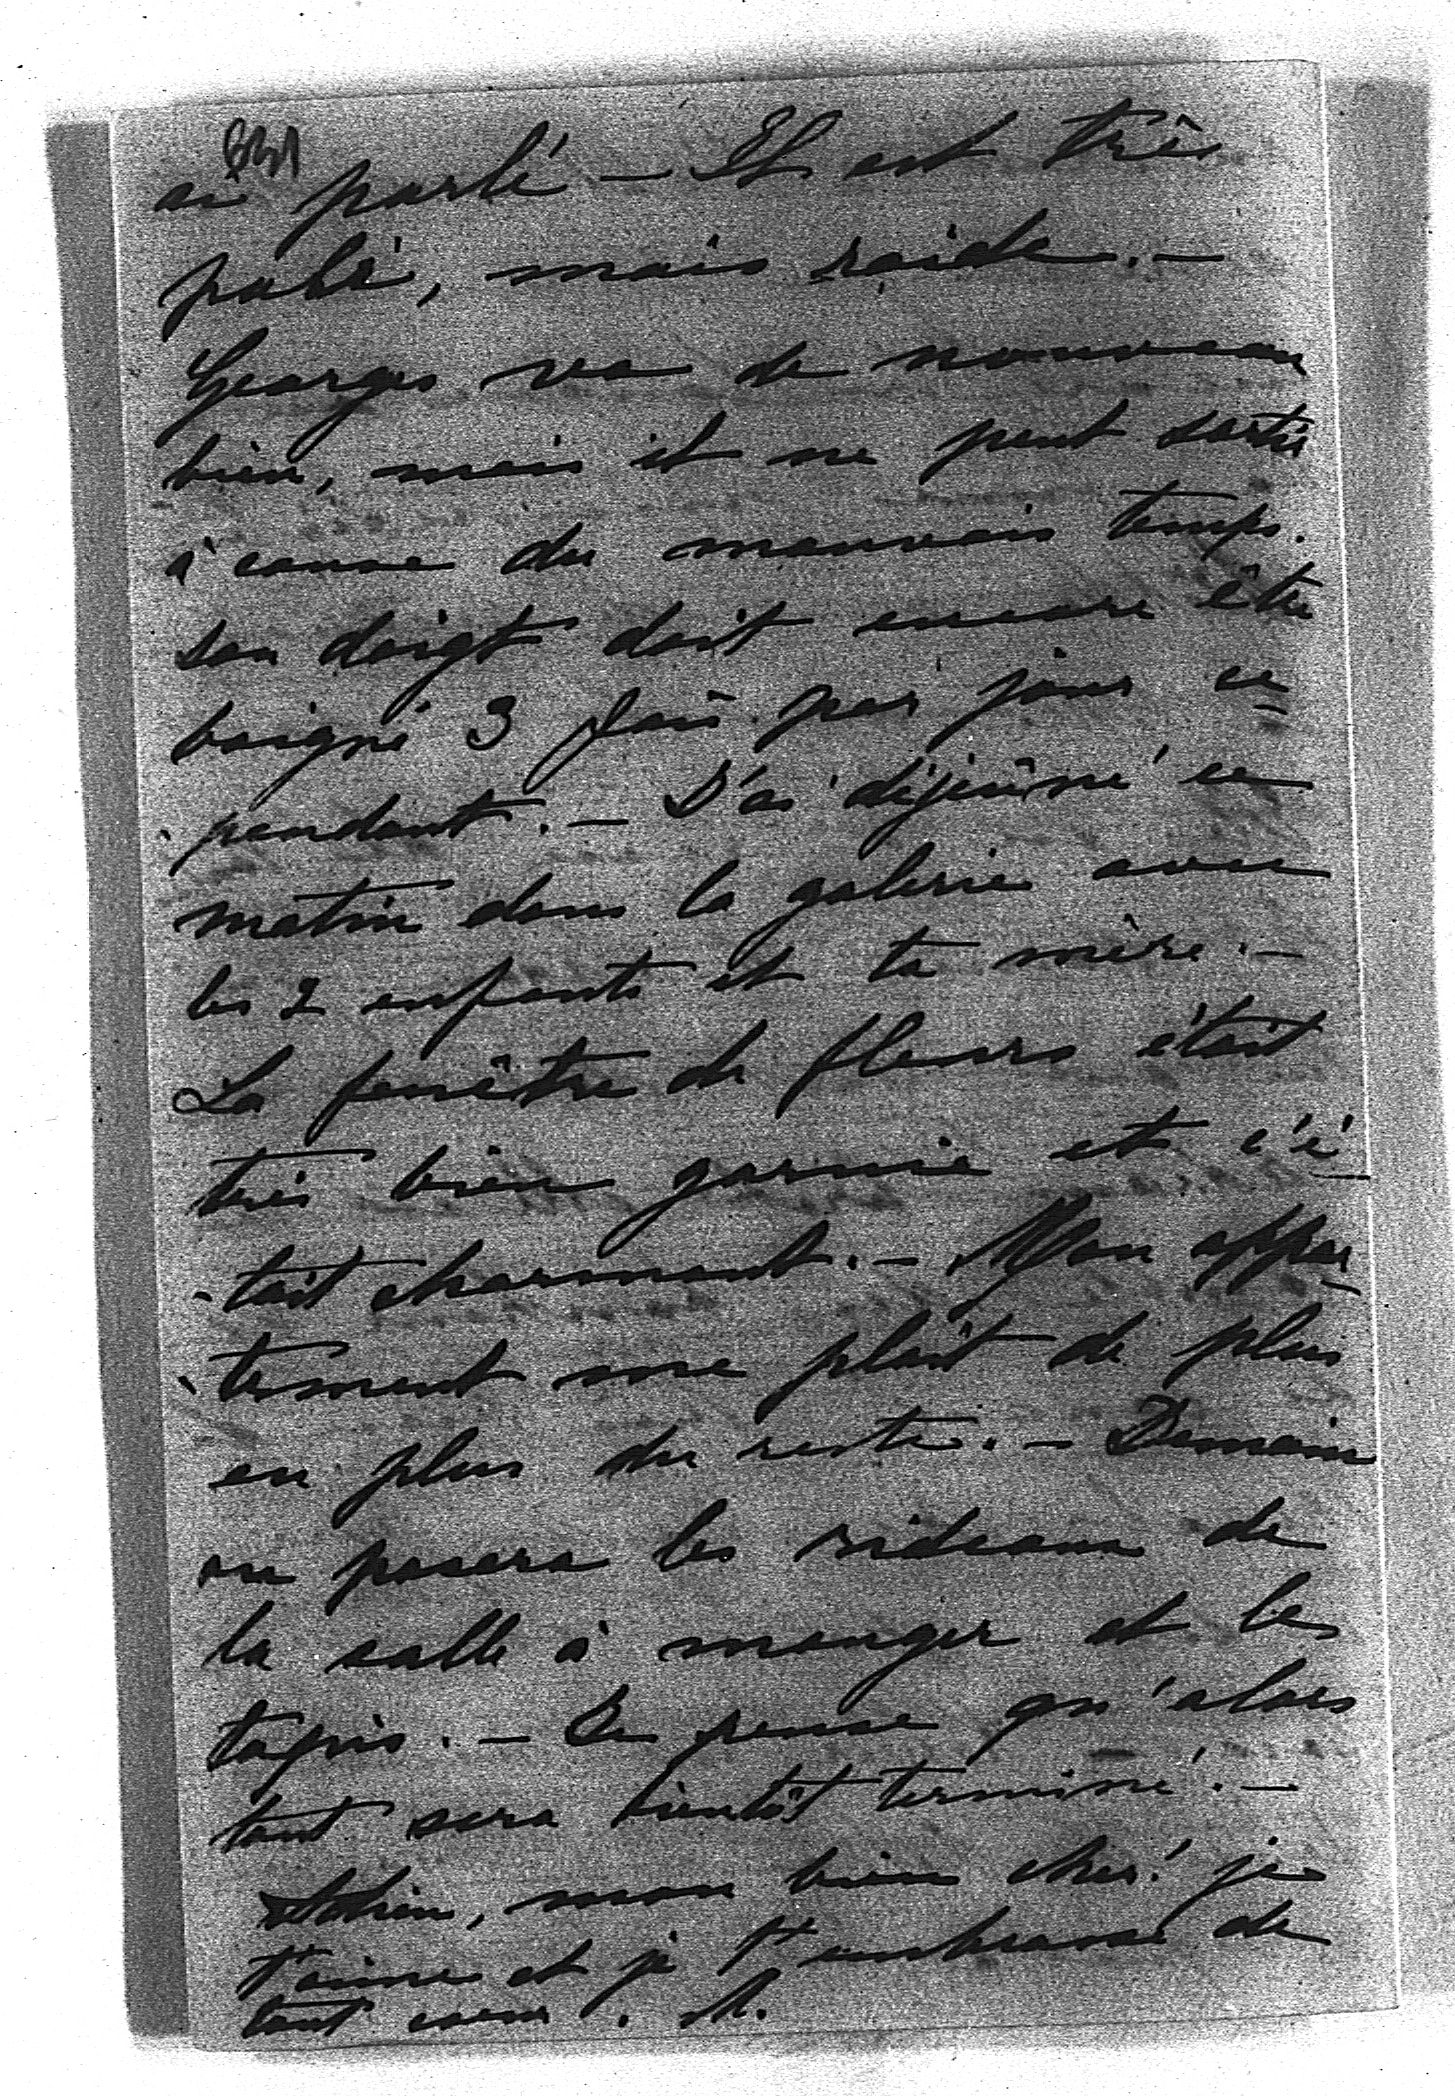 ai parlé — Il est très
poli, mais raide. —
Georges va de nouveau
bien, mais il ne peut sortir
à cause du mauvais temps.
son doigt doit encore être
baigné 3 fois par jour ce-
-pendant. — J'ai déjeûné ce
matin dans la galerie avec
les 2 enfants et ta mère. —
La fenêtre de fleurs était
très bien garnie et c'é-
-tait charmant. — Mon appar-
-tement me plaît de plus
en plus du reste. — Demain
on posera les rideaux de
la salle à manger et les
tapis. — Je pense qu'alors
tout sera bientôt terminé. —
Adieu, mon bien cher! je
t'aime et je t'embrasse de
tout cœur. M.